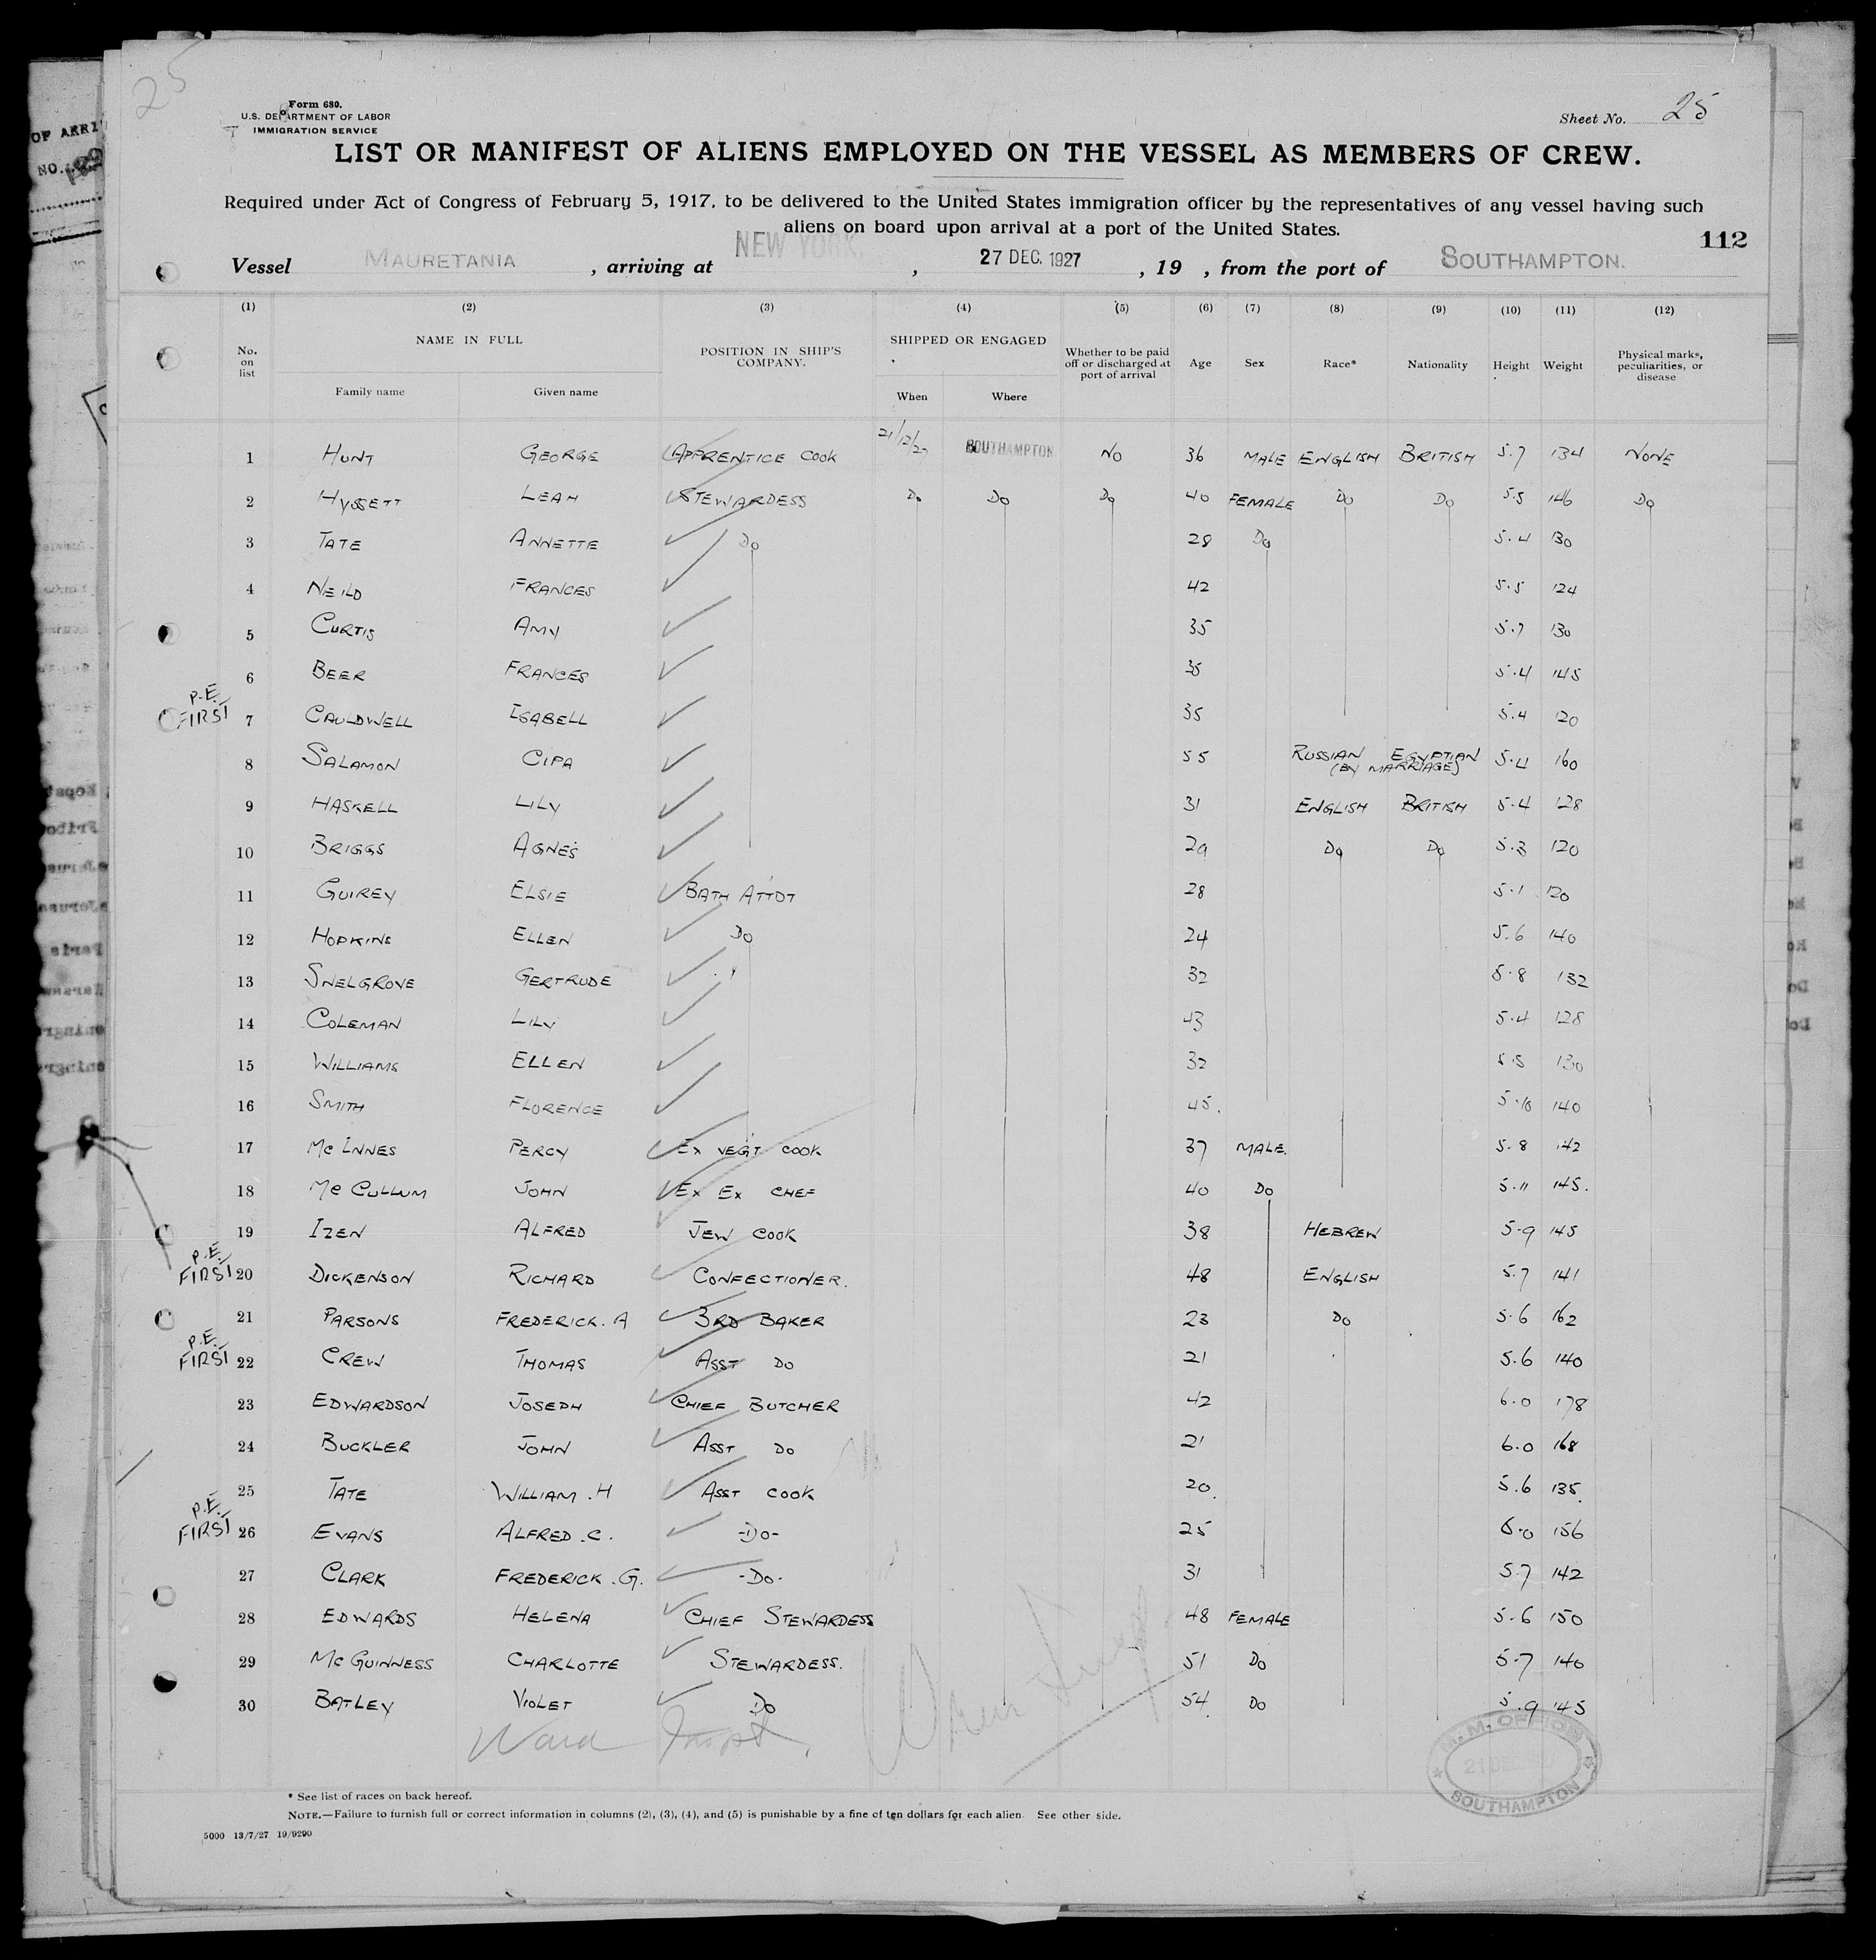 25
Form 680.
U.S. DEPARTMENT OF LABOR
IMMIGRATION SERVICE
Sheet No. 25
LIST OR MANIFEST OF ALIENS EMPLOYED ON THE VESSEL AS MEMBERS OF CREW.
Required under Act of Congress of February 5, 1917, to be delivered to the United States immigration officer by the representatives of any vessel having such
aliens on board upon arrival at a port of the United States.
112
Vessel MAURETANIA , arriving at NEW YORK. , 27 DEC. 1927 , 19 , from the port of SOUTHAMPTON.
(1) (2) (3) (4) (5) (6) (7) (8) (9) (10) (11) (12)
No. on list NAME IN FULL Family name Given name POSITION IN SHIP'S COMPANY. SHIPPED OR ENGAGED When Where Whether to be paid off or discharged at port of arrival Age Sex Race* Nationality Height Weight Physical marks, peculiarities, or disease
1 HUNT GEORGE APPRENTICE COOK 21/12/27 SOUTHAMPTON NO 36 MALE ENGLISH BRITISH 5.7 134 NONE
2 HYSSETT LEAH STEWARDESS Do Do Do 40 FEMALE Do Do 5.5 146 Do
3 TATE ANNETTE Do 28 Do 5.4 130
4 NEILD FRANCES 42 5.5 124
5 CURTIS AMY 35 5.7 130
6 BEER FRANCES 35 5.4 145
P.E. FIRST 7 CAULDWELL ISABELL 35 5.4 120
8 SALAMON CIPA 55 RUSSIAN EGYPTIAN (BY MARRIAGE) 5.4 160
9 HASKELL LILY 31 ENGLISH BRITISH 5.4 128
10 BRIGGS AGNES 29 Do Do 5.3 120
11 GUIREY ELSIE BATH ATTDT 28 5.1 120
12 HOPKINS ELLEN Do 24 5.6 140
13 SNELGROVE GERTRUDE 32 5.8 132
14 COLEMAN LILY 43 5.4 128
15 WILLIAMS ELLEN 32 5.5 130
16 SMITH FLORENCE 45. 5.10 140
17 Mc INNES PERCY EX VEGT COOK 37 MALE. 5.8 142
18 Mc CULLUM JOHN EX EX CHEF 40 Do 5.11 145.
19 IZEN ALFRED JEW COOK 38 HEBREW 5.9 145
P.E. FIRST 20 DICKENSON RICHARD CONFECTIONER. 48 ENGLISH 5.7 141
21 PARSONS FREDERICK. A 3RD BAKER 23 Do 5.6 162
P.E. FIRST 22 CREW THOMAS ASST DO 21 5.6 140
23 EDWARDSON JOSEPH CHIEF BUTCHER 42 6.0 178
24 BUCKLER JOHN ASST DO 21 6.0 168
25 TATE WILLIAM .H ASST COOK 20. 5.6 135.
P.E. FIRST 26 EVANS ALFRED .C. -DO- 25 6.0 156
27 CLARK FREDERICK .G. -DO- 31 5.7 142
28 EDWARDS HELENA CHIEF STEWARDESS 48 FEMALE 5.6 150
29 Mc GUINNESS CHARLOTTE STEWARDESS. 51 DO 5.7 140
30 BATLEY VIOLET DO 54. DO 5.9 145
Ward Inspt.
M.M. OFFICE
21 DEC
SOUTHAMPTON
* See list of races on back hereof.
NOTE.—Failure to furnish full or correct information in columns (2), (3), (4), and (5) is punishable by a fine of ten dollars for each alien. See other side.
5000 13/7/27 19/9290